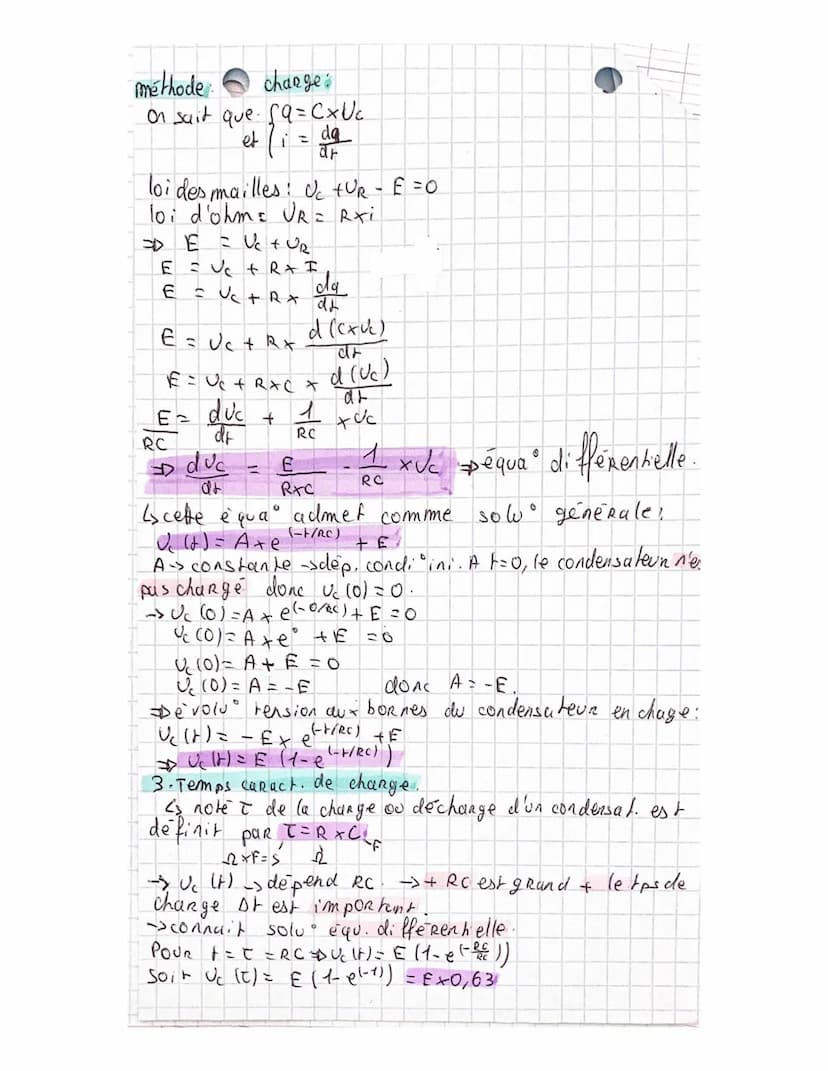 méthode charge:
On sait que { q = C × Uc
et { i = dq/dt
loi des mailles: Uc + UR - E = 0
loi d'ohm: UR = R × i
⇒ E = Uc + UR
E = Uc + R × I
E = Uc + R × dq/dt
E = Uc + R × d(C×Uc)/dt
E = Uc + R×C × d(Uc)/dt
E/RC = dUc/dt + 1/RC × Uc
⇒ dUc/dt = E/R×C - 1/RC × Uc ⇒ équa° différentielle.
↳ cette équa° admet comme solu° générale:
Uc(t) = A × e^(-t/RC) + E
A → constante → dép. condi° ini. A t=0, le condensateur n'e
pas chargé donc Uc(0) = 0.
→ Uc(0) = A × e^(-0/RC) + E = 0
Uc(0) = A × e° + E = 0
Uc(0) = A + E = 0
Uc(0) = A = -E donc A = -E.
⇒ évolu° tension aux bornes du condensateur en chage:
Uc(t) = - E × e^(-t/RC) + E
⇒ Uc(t) = E (1-e^(-t/RC))
3. Temps caract. de charge.
↳ noté τ de la charge ou décharge d'un condensat. est
définit par τ = R × C → F
Ω×F=S Ω
→ Uc(t) → dépend RC. → + RC est grand + le tps de
charge Δt est important.
→ connait solu° équ. différentielle.
Pour t = τ = RC ⇒ Uc(t) = E (1-e^(-RC/RC))
Soit Uc(τ) = E (1-e^(-1)) = E×0,63